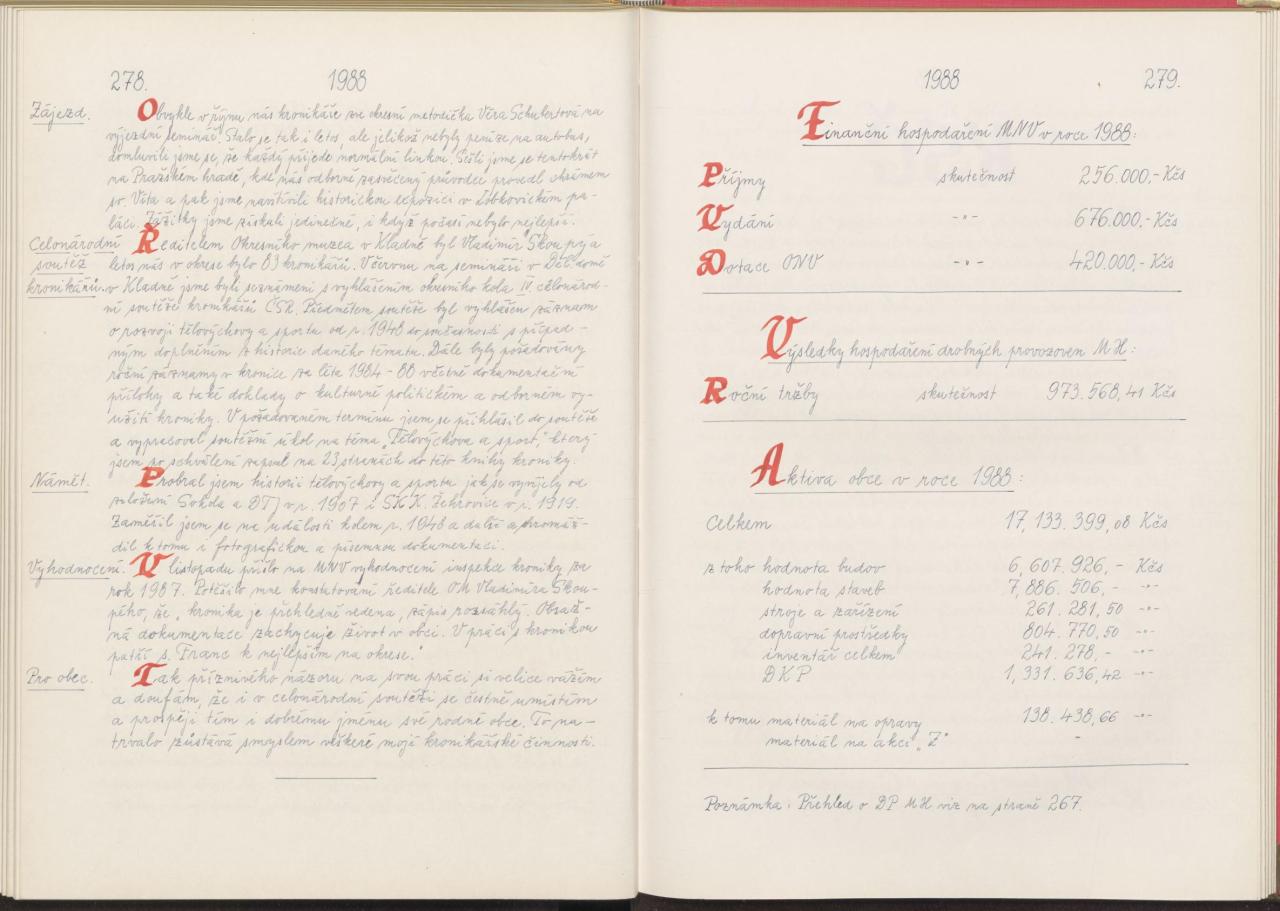 278. 1988
Zájezd. Obvykle v říjnu nás kronikáře zve okresní metodička Věra Schubertová na
výjezdní seminář. Stalo se tak i letos, ale jelikož nebyly peníze na autobus,
domluvili jsme se, že každý přijede normální linkou. Sešli jsme se tentokrát
na Pražském hradě, kde nás odborně zasvěcený průvodce provedl chrámem
sv. Víta a pak jsme navštívili historickou expozici v Lobkovickém pa-
láci. Zážitky jsme získali jedinečné, i když počasí nebylo nejlepší.
Celonárodní Ředitelem Okresního muzea v Kladně byl Vladimír Skoupý a
soutěž letos nás v okrese bylo 83 kronikářů. V červnu na semináři v Děl. domě
kronikářů. v Kladně jsme byli seznámeni s vyhlášením okresního kola IV. celonárod-
ní soutěže kronikářů ČSR. Předmětem soutěže byl vyhlášen záznam
o rozvoji tělovýchovy a sportu od r. 1948 do současnosti s případ-
ným doplněním z historie daného tématu. Dále byly požadovány
roční záznamy v kronice za léta 1984 - 88 včetně dokumentační
přílohy a také doklady o kulturně politickém a odborném vy-
užití kroniky. V požadovaném termínu jsem se přihlásil do soutěže
a vypracoval soutěžní úkol na téma „Tělovýchova a sport," který
jsem po schválení zapsal na 23 stranách do této knihy kroniky.
Námět. Probral jsem historii tělovýchovy a sportu jak se vyvíjely od
založení Sokola a DTJ v r. 1907 i SK K. Žehrovice v r. 1919.
Zaměřil jsem se na události kolem r. 1948 a další a shromáž-
dil k tomu i fotografickou a písemnou dokumentaci.
Vyhodnocení. V listopadu přišlo na MNV vyhodnocení inspekce kroniky za
rok 1987. Potěšilo mne konstatování ředitele OM Vladimíra Skou-
pého, že „kronika je přehledně vedena, zápis rozsáhlý. Obraz-
ná dokumentace zachycuje život v obci. V práci s kronikou
patří s. Franc k nejlepším na okrese."
Pro obec. Tak příznivého názoru na svou práci si velice vážím
a doufám, že i v celonárodní soutěži se čestně umístím
a prospěji tím i dobrému jménu své rodné obce. To na-
trvalo zůstává smyslem veškeré mojí kronikářské činnosti.
1988 279.
Finanční hospodaření MNV v roce 1988:
Příjmy skutečnost 256.000,- Kčs
Vydání -"- 676.000,- Kčs
Dotace ONV -"- 420.000,- Kčs
Výsledky hospodaření drobných provozoven MH:
Roční tržby skutečnost 973.568,41 Kčs
Aktiva obce v roce 1988:
Celkem 17,133.399,08 Kčs
z toho hodnota budov 6,607.926,- Kčs
hodnota staveb 7,886.506,- -"-
stroje a zařízení 261.281,50 -"-
dopravní prostředky 804.770,50 -"-
inventář celkem 241.278,- -"-
DKP 1,331.636,42 -"-
k tomu materiál na opravy 138.438,66 -"-
materiál na akci „Z" -
Poznámka: Přehled o DP MH viz na straně 267.